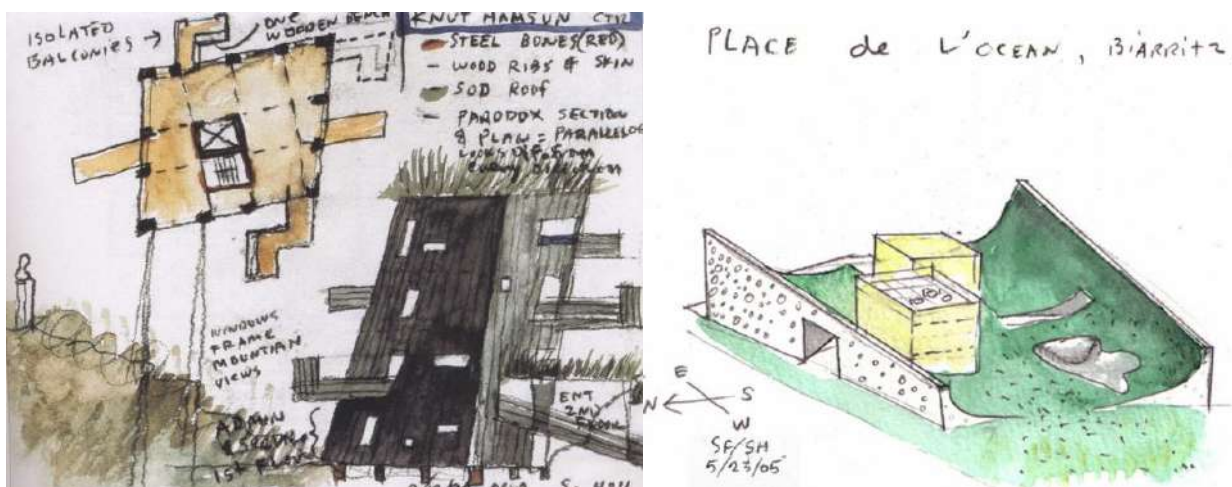 ISOLATED
BALCONIES
ONE
WOODEN BENCH
KNUT HAMSUN CTR
STEEL BONES (RED)
- WOOD RIBS & SKIN
SOD ROOF
- PARODOX SECTION
& PLAN = PARALLELOG
EVERY DIRECTION
WINDOWS
FRAME
MOUNTAIN
VIEWS
ADMIN
1ST FLOOR
ENT
2ND
FLOOR
PLACE de L'OCEAN, BIARRITZ
E
N
S
W
SF/SH
5/23/05